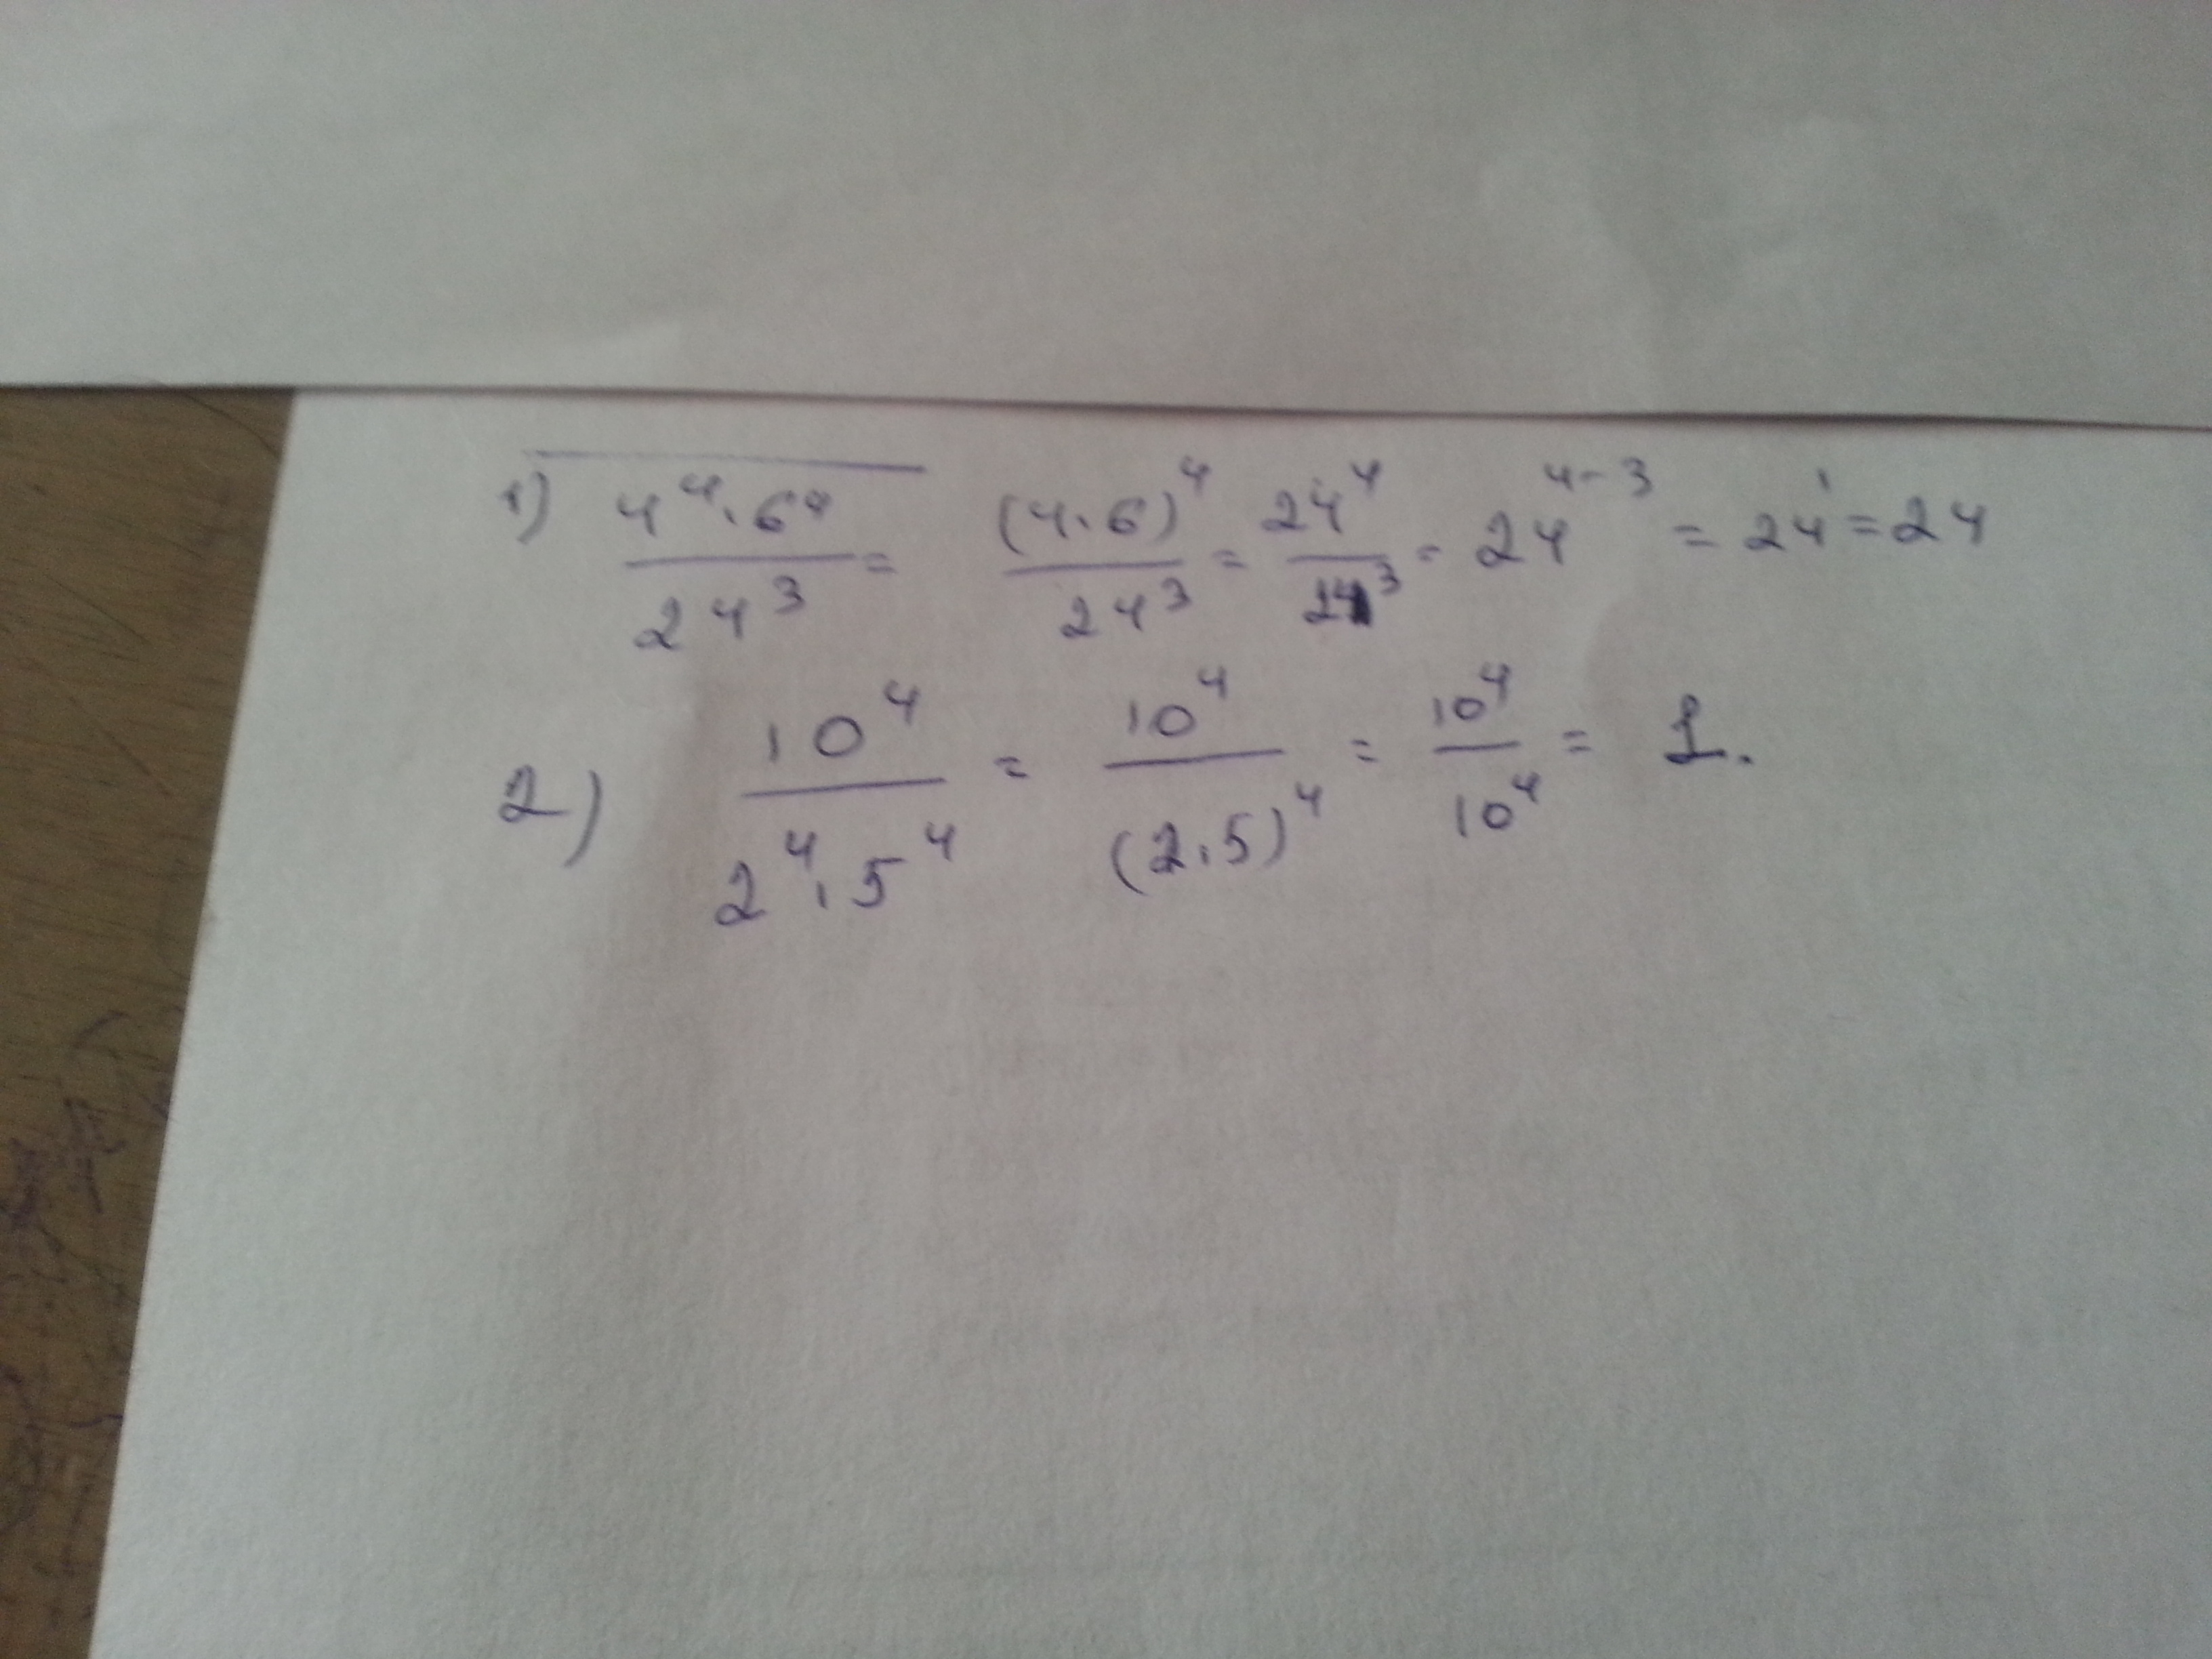 1) 4^4·6^4/24^3 = (4·6)^4/24^3 = 24^4/24^3 = 24^(4-3) = 24^1 = 24
2) 10^4/2^4·5^4 = 10^4/(2·5)^4 = 10^4/10^4 = 1.